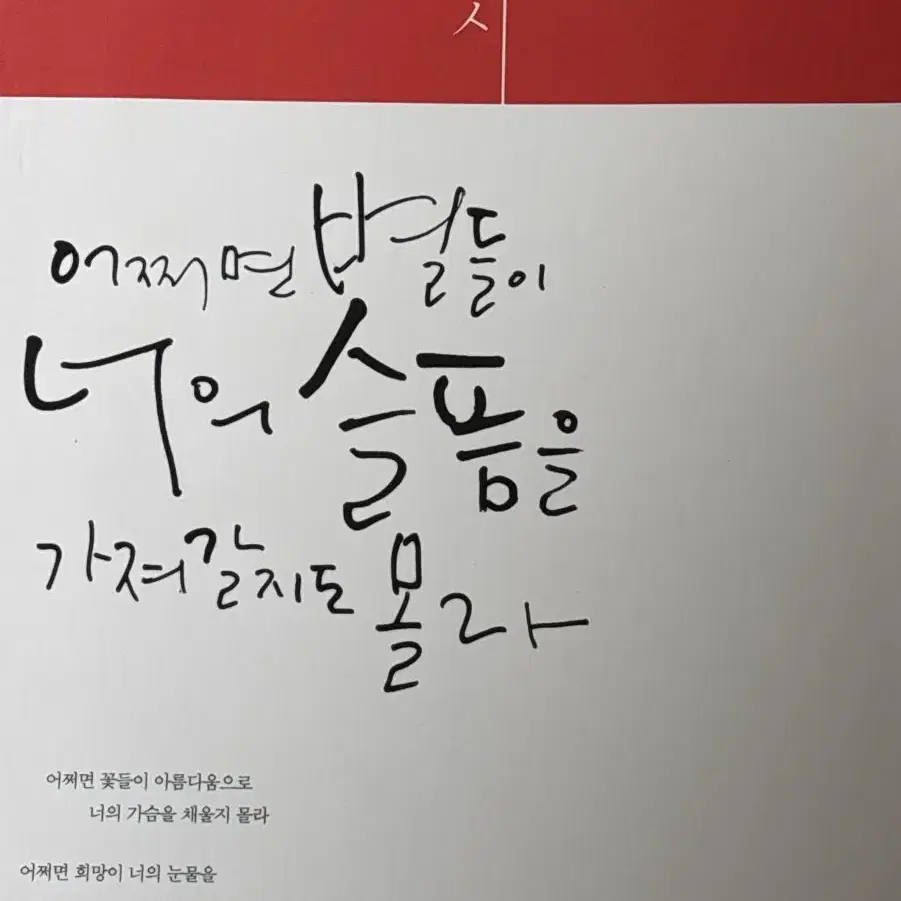 시
어쩌면 별들이
너의 슬픔을
가져갈지도 몰라
어쩌면 꽃들이 아름다움으로
너의 가슴을 채울지 몰라
어쩌면 희망이 너의 눈물을